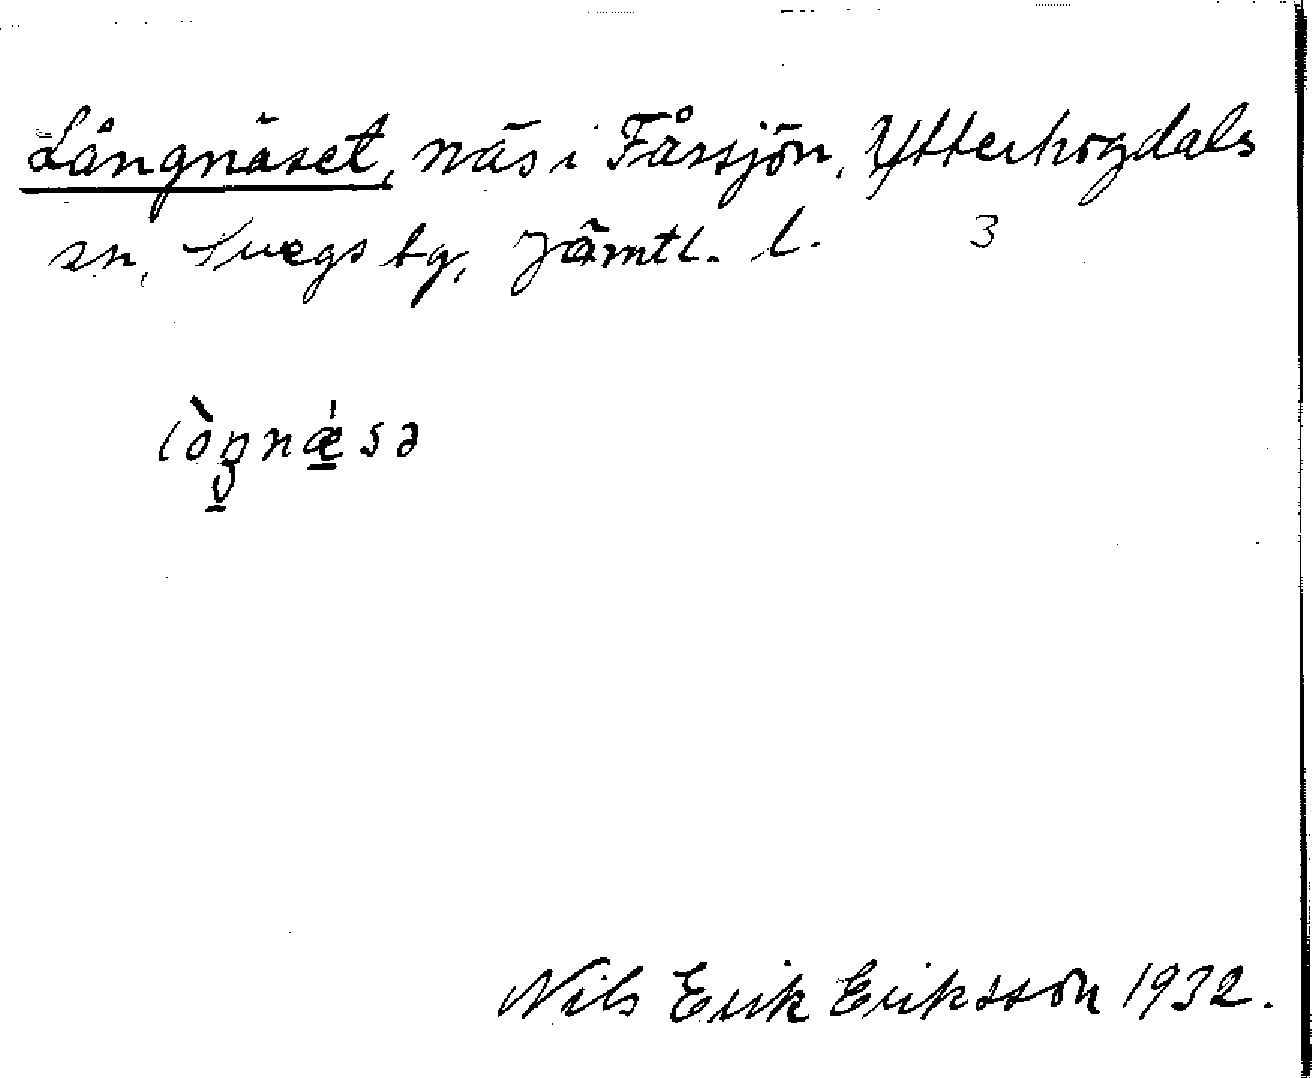 Långnäset, näs i Fårsjön, Ytterhogdals
sn, Svegs tg, Jämtl. l. 3
lòŋnæ̀sə
Nils Erik Eriksson 1932.